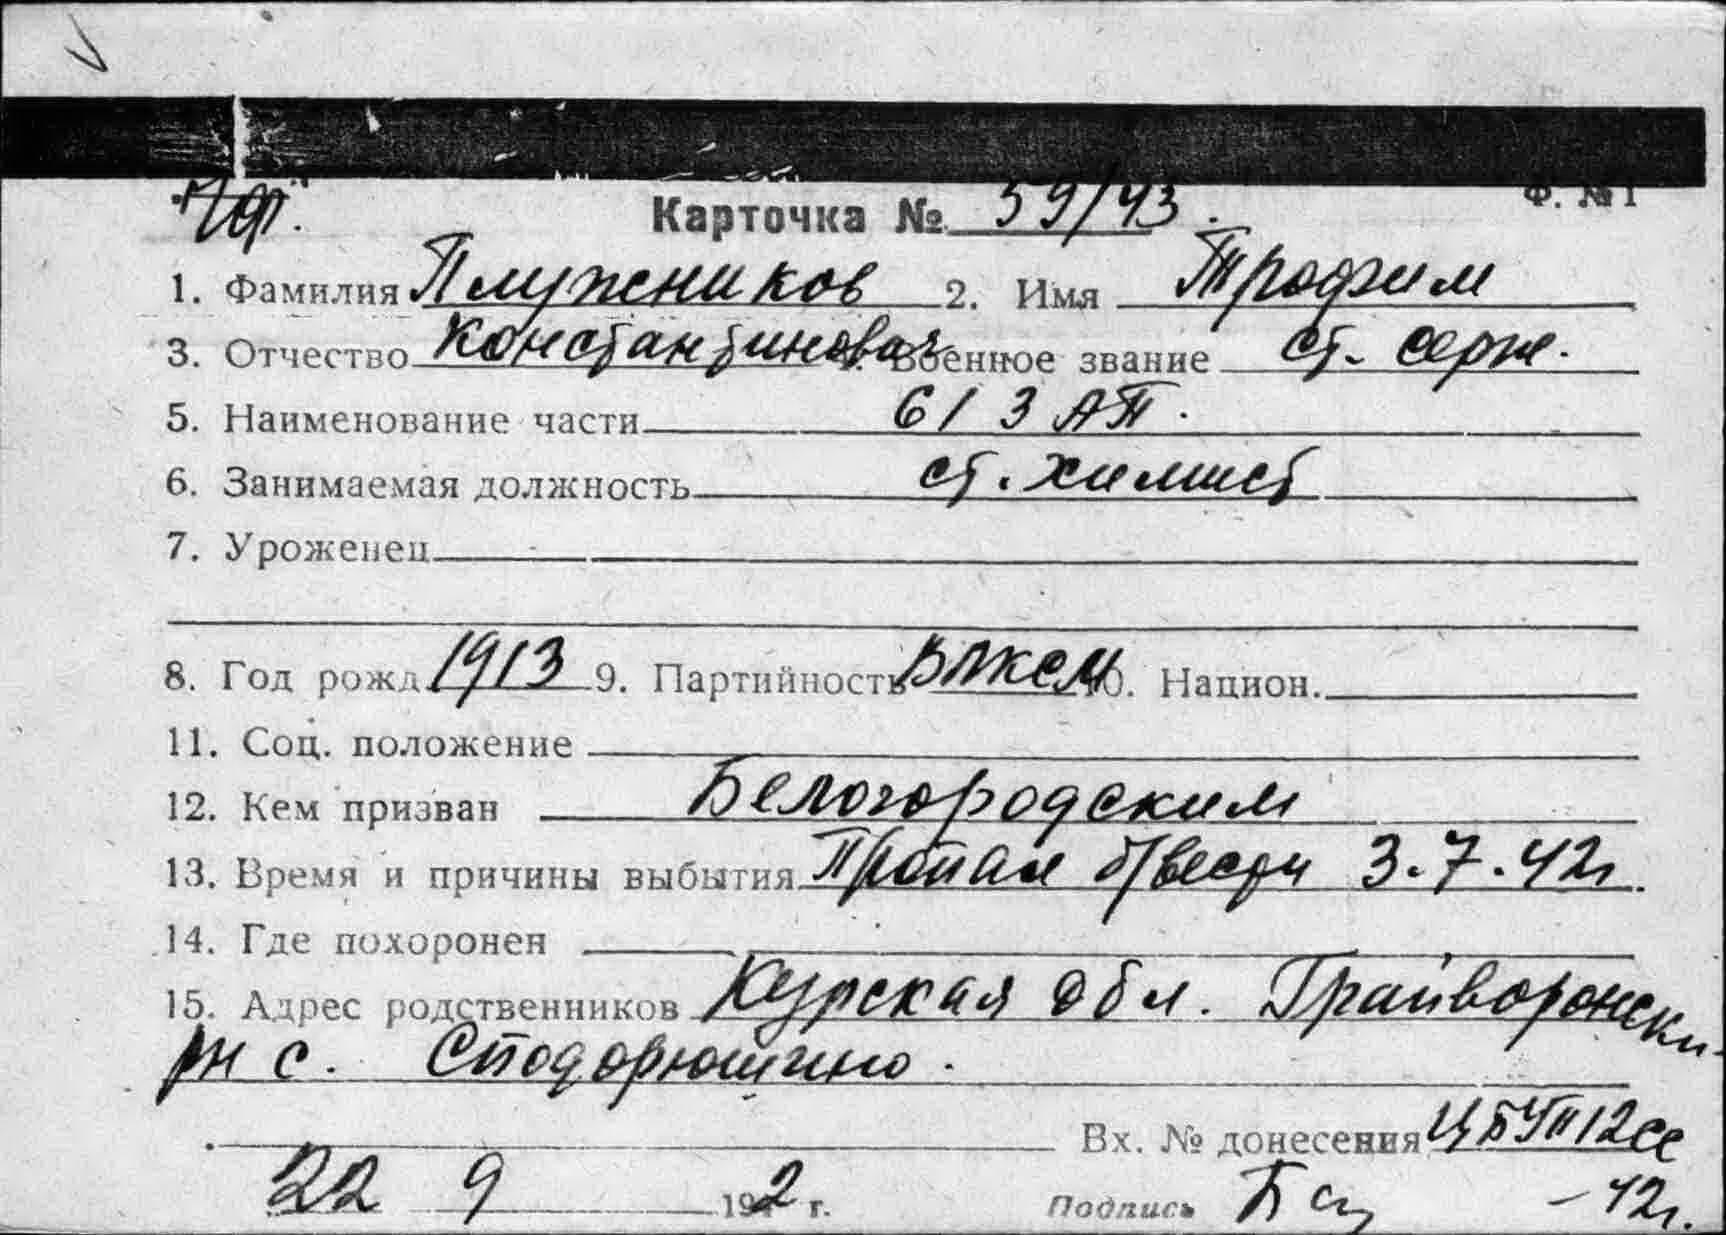 Ф. № 1
Карточка № 59/43.
1. Фамилия Плужников 2. Имя Трофим
3. Отчество Константинович Военное звание ст. серж.
5. Наименование части 613 АП.
6. Занимаемая должность ст. химист
7. Уроженец
8. Год рожд 1913 9. Партийность ВЛКСМ 10. Национ.
11. Соц. положение
12. Кем призван Белогородским
13. Время и причины выбытия Пропал б/вести 3.7.42г.
14. Где похоронен
15. Адрес родственников Курская обл. Грайворонски-
рн с. Сподорюшино.
Вх. № донесения ЦБУП 12сс
22 9 1942 г. Подпись -42г.